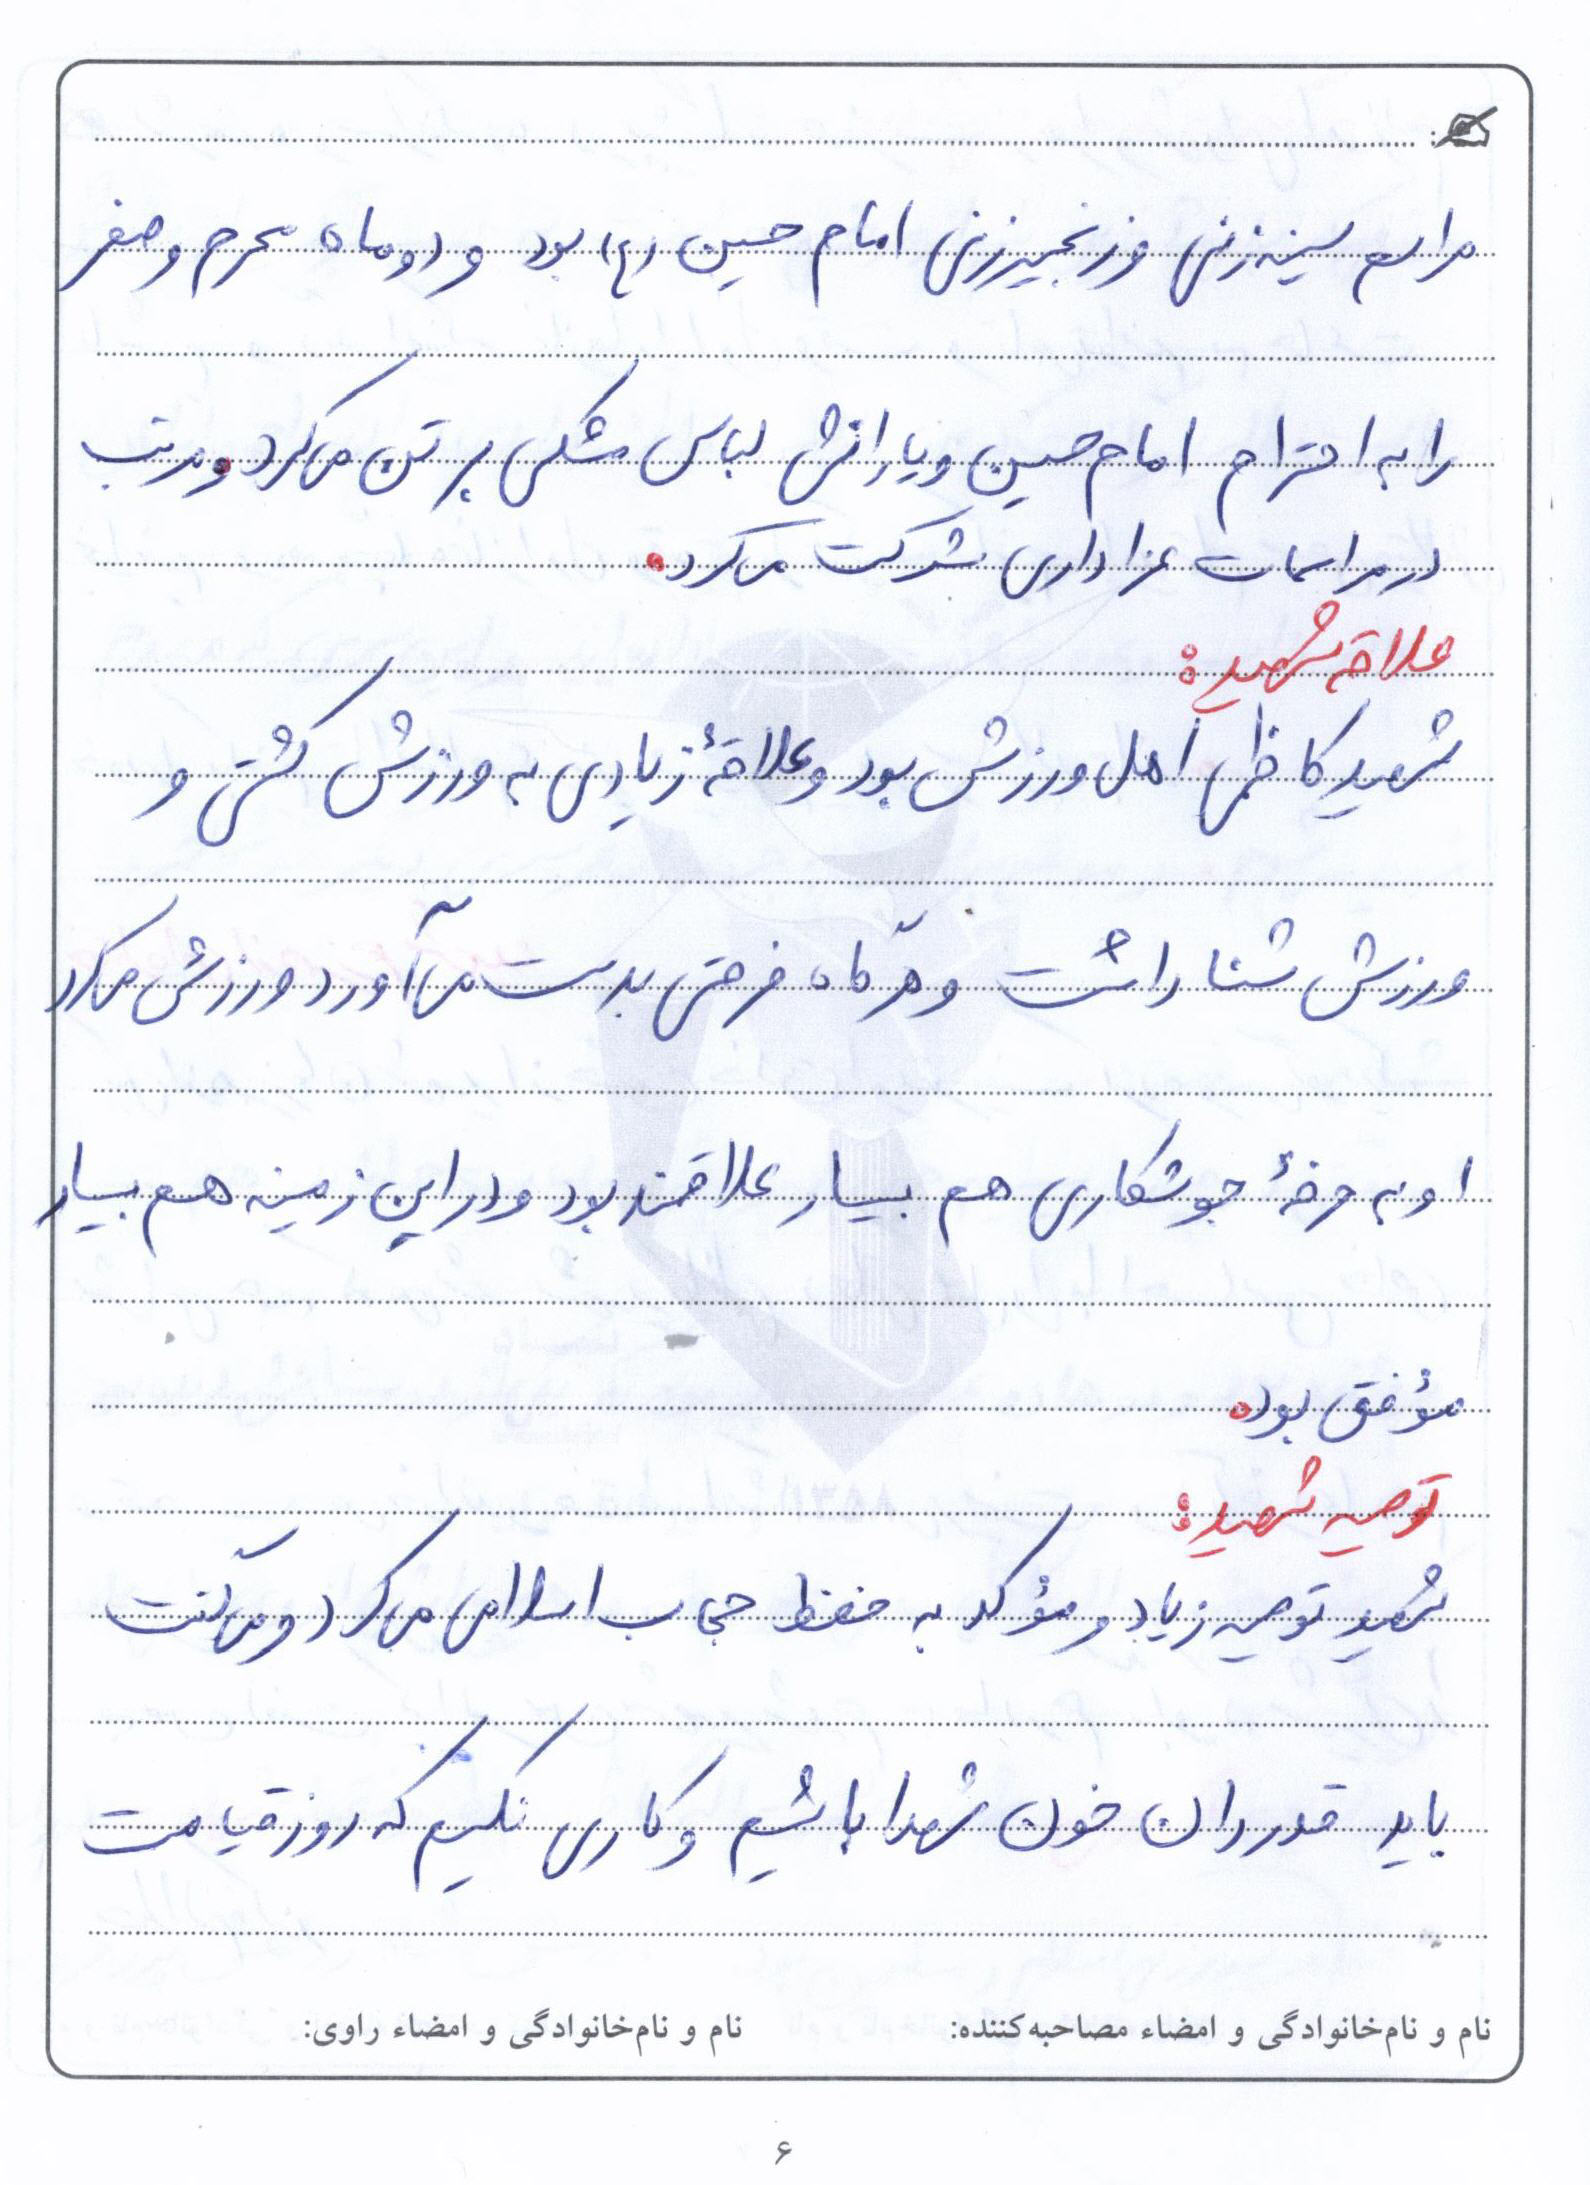 مراسم سینه‌زنی و زنجیرزنی امام حسین (ع) بود و دو ماه محرم و صفر
را به احترام امام حسین و یارانش لباس مشکی بر تن می‌کرد و مرتب
در مراسمات عزاداری شرکت می‌کرد.
علاقه شهید:
شهید کاظمی اهل ورزش بود و علاقهٔ زیادی به ورزش کشتی و
ورزش شنا داشت و هرگاه فرصتی بدست می‌آورد ورزش میکرد
او به حرفهٔ جوشکاری هم بسیار علاقمند بود و در این زمینه هم بسیار
مؤفق بود.
توصیه شهید:
شهید توصیه زیاد و مؤکد به حفظ حجاب اسلامی می‌کرد و می‌گفت
باید قدردان خون شهدا باشیم و کاری نکنیم که روز قیامت
نام و نام‌خانوادگی و امضاء مصاحبه‌کننده: نام و نام‌خانوادگی و امضاء راوی:
۶